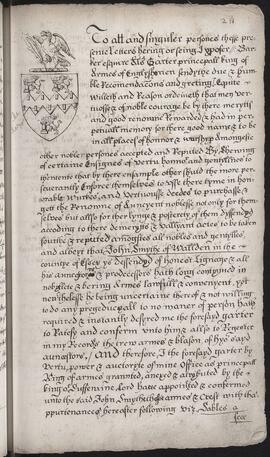 To all and singuler persones these pre-
sent Letters hering or seing
esquire Garter principall King of
Armes of Englishmen sendythe due & humble
Recomendacons and greting, Equite
willethe and Reason ordeineth that men ver-
tuouse & of noble courage be by there merytts
and good renoune Rewarded & had in per-
petuall memory for there good name & to be
in all places of honour & worship amongist
other noble persones accepted and Reputed By shewing
of certaine Ensignes of honor and gentylnes to
thentente that by there ensample other shuld the more per-
severantly enforce themselves to use there tyme in hon-
orable workes and vertuouse deedes to purchase &
gett the Renowne of Auncyent noblesse not only for them-
selves but allso for ther lynge & posterity of them dissendyd
according to there demerytts & vallyant actes to be taken
fourthe & reputed amongist all nobles and gentylles,
and albeit that John Smythe of Wallden in the
countye of Essex ys dessendyd of honest Lignage & all
his & predecessors hath long contynued in
nobylete & bering Armes lawfull & convenyent, yet
nevertheless he being uncertaine therof & not willing
to do any prejudice to no maner of person hath
required & instantly desired me the foresayd garter
to Ratefy and conferm unto him & allso to Register
in my Recordes the trew armes & blason of hys sayd
auncestors, And therefore, I the foresayd garter by
Vertu, power & auctoryte of mine Office as principall
King of armes granted, anexed & atrybuted by the
king o. Souveraine Lord hathe appointed & confermed
unto the sayd John Smythe armes & Crest with thap-
purtenances hereafter following viz. Sables a
fece